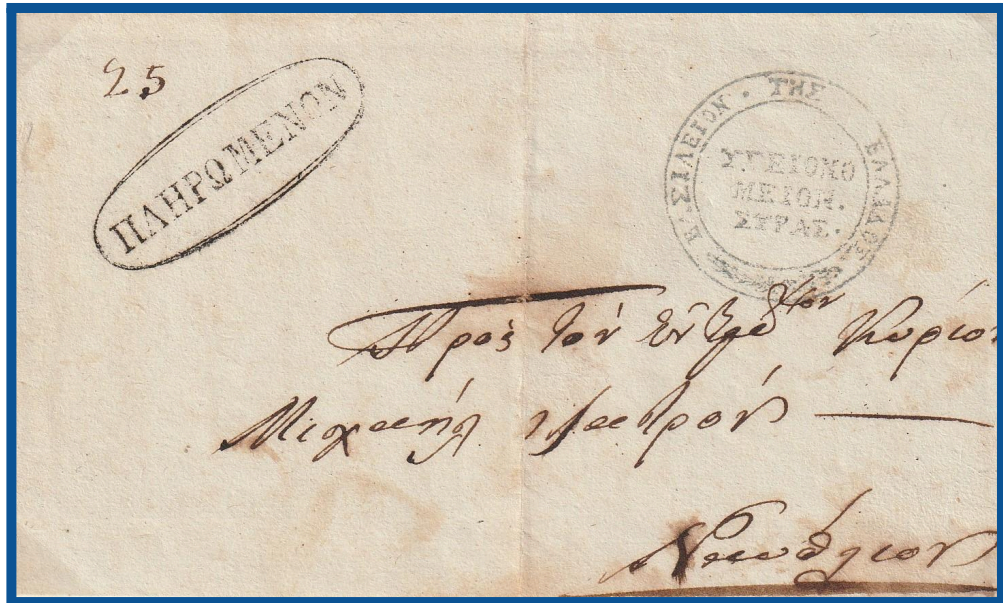 25
ΠΛΗΡΩΜΕΝΟΝ
ΒΑΣΙΛΕΙΟΝ · ΤΗΣ ΕΛΛΑΔΟΣ
ΥΓΕΙΟΝΟ
ΜΕΙΟΝ.
ΣΥΡΑΣ.
Πρὸς τὸν Κύριον
Μιχαὴλ Ἰατρόν
Ναύπλιον